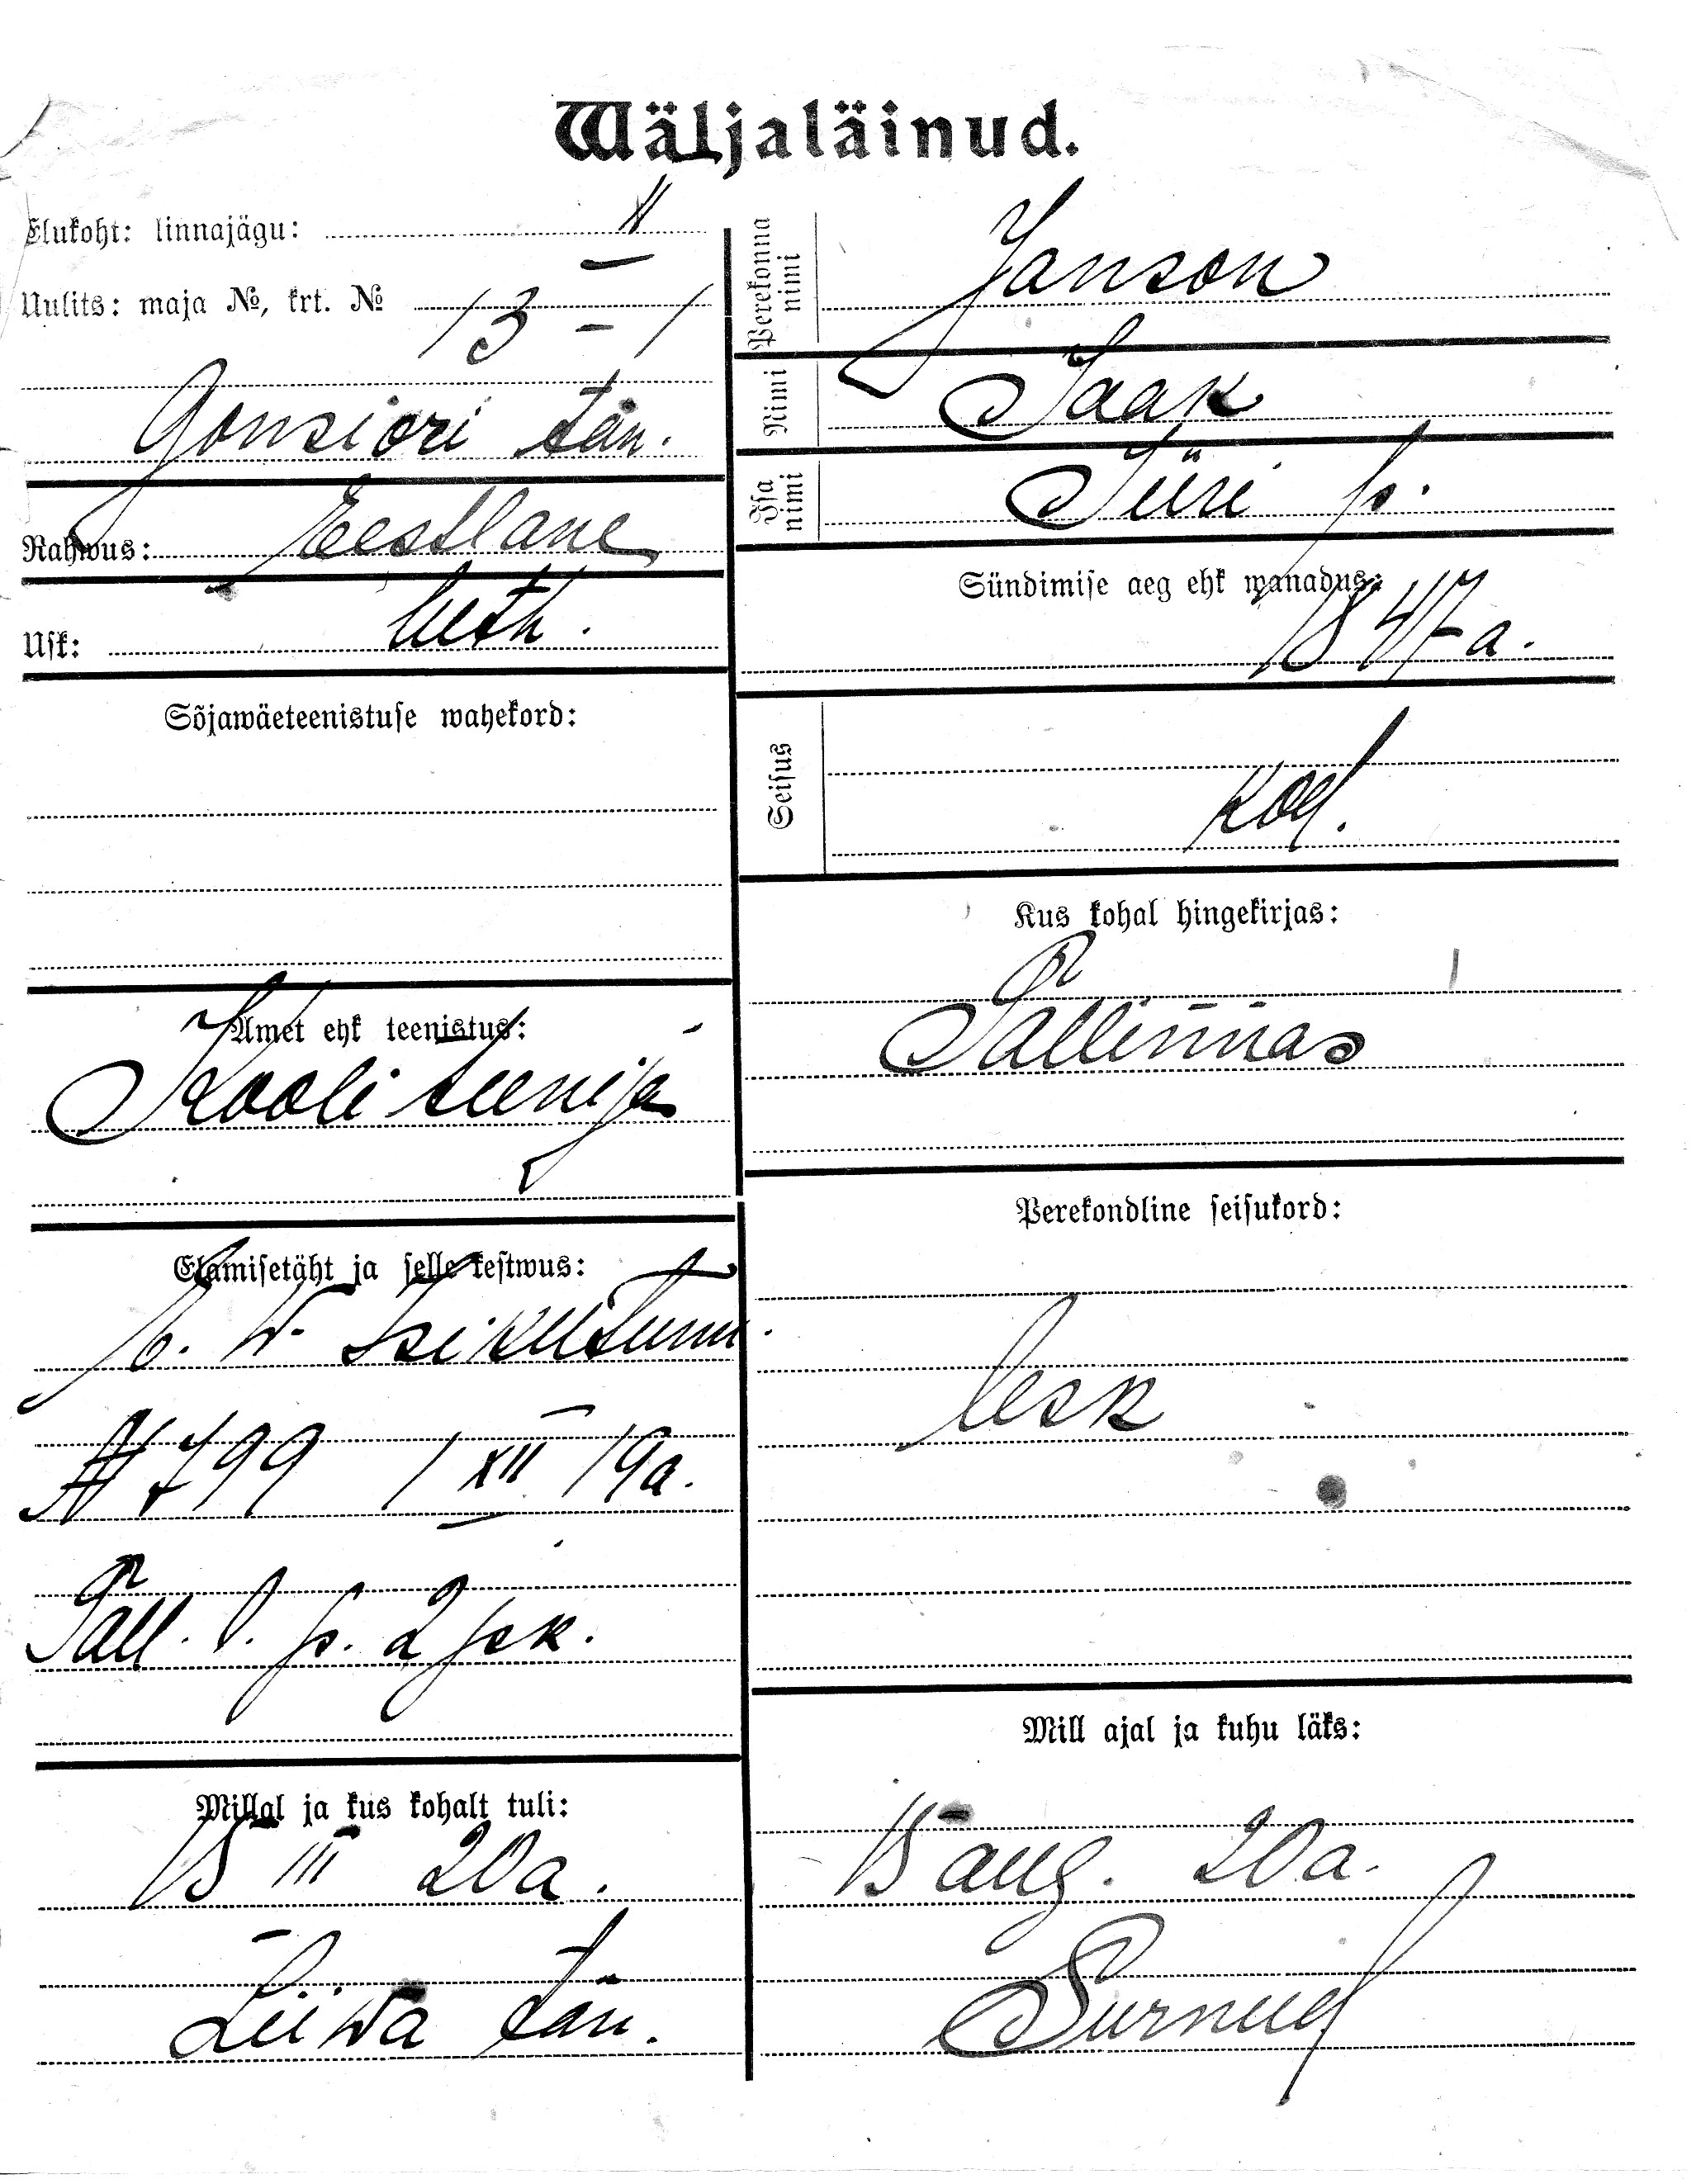 Wäljaläinud.
Elukoht: linnajägu: II
Uulits: maja №, krt. № 13 - 1
Gonsiori tän.
Rahwus: Eestlane
Usk: luth.
Sõjawäeteenistuse wahekord:
Amet ehk teenistus:
Kooli teenija
Elamisetäht ja selle kestwus:
E. W. Isikutunn.
№ 799 1 XII 19a.
Tall. l. p. 2 jsk.
Millal ja kus kohalt tuli:
15 III 20a.
Liiwa tän.
Perekonna nimi Janson
Nimi Jaak
Isa nimi Jüri p.
Sündimise aeg ehk wanadus:
1847 a.
Seisus
kod.
Kus kohal hingekirjas:
Tallinnas
Perekondline seisukord:
lesk
Mill ajal ja kuhu läks:
15 aug. 20a.
Surnud